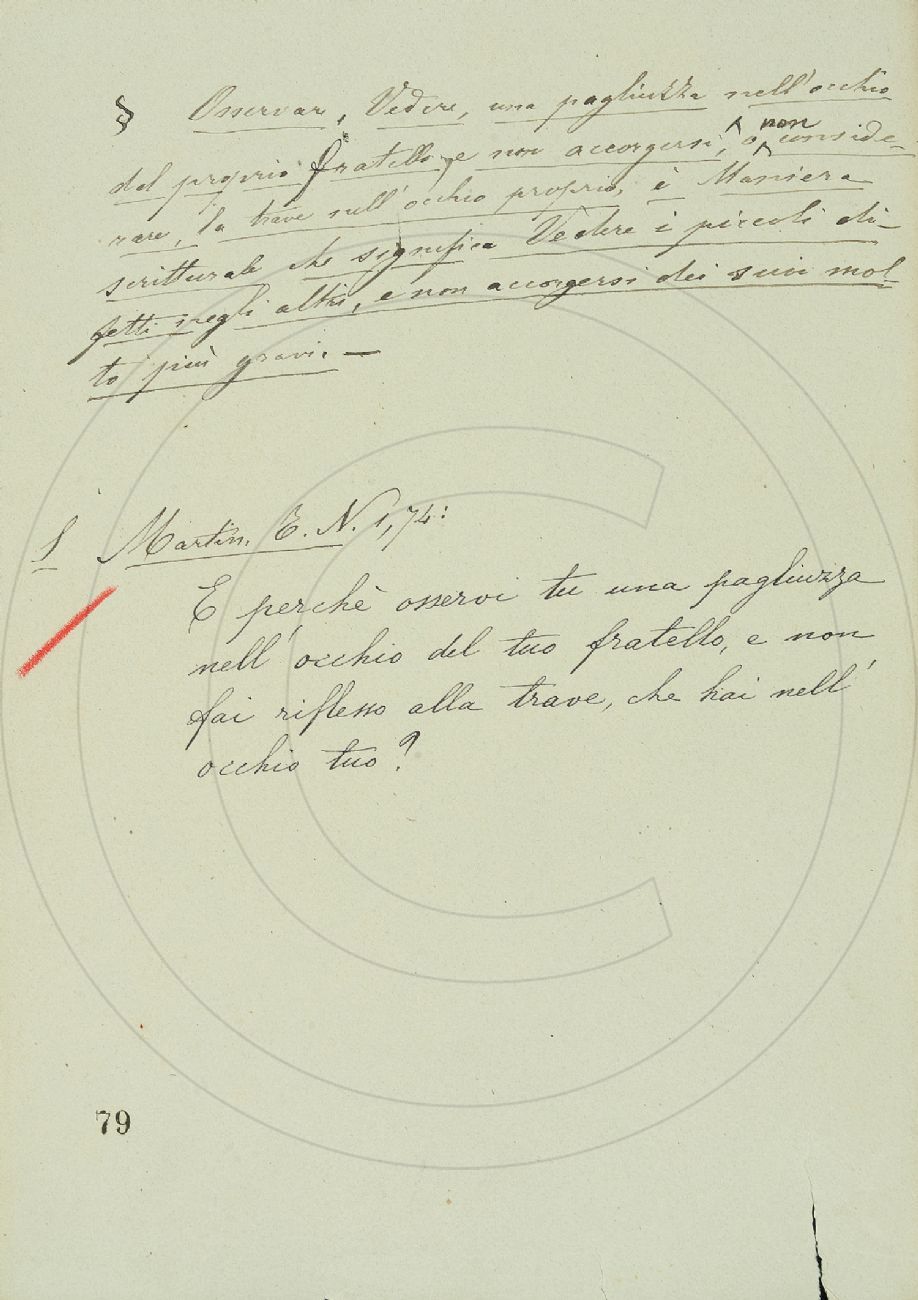 § Osservare, Vedere, una pagliuzza nell'occhio
del proprio fratello, e non accorgersi, o non conside-
rare, la trave nell'occhio proprio, è Maniera
scritturale che significa Vedere i piccoli di-
fetti negli altri, e non accorgersi dei suoi mol
to più gravi. —
§ Martin. E. N. 1, 74:
E perchè osservi tu una pagliuzza
nell'occhio del tuo fratello, e non
fai riflesso alla trave, che hai nell'
occhio tuo?
79